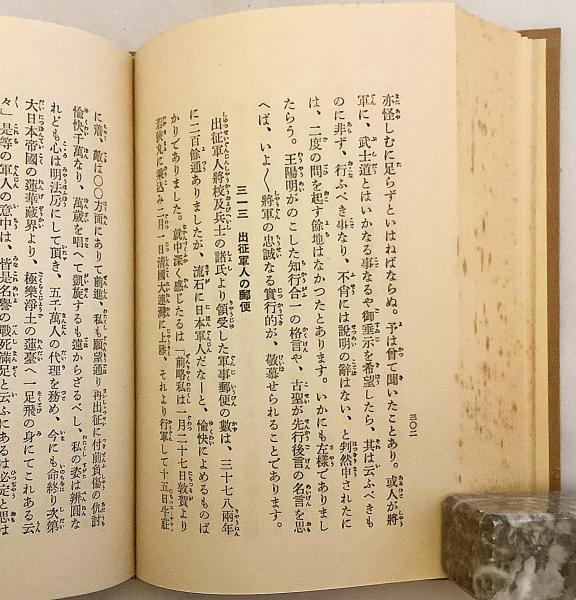 亦怪しむに足らずといはねばならぬ。予は曾て聞いたことあり。或人が將
軍に、武士道とはいかなる事なるや御垂示を希望したら、其は云ふべきも
のに非ず、行ふべき事なり、不肖には說明の辭はない、と判然申されたに
は、二度の問を起す餘地はなかつたとあります。いかにも左樣でありまし
たらう。王陽明がのこした知行合一の格言や、古聖が先行後言の名言を思
へば、いよ〱將軍の忠誠なる實行的が、敬慕せられることであります。
三一三 出征軍人の郵便
出征軍人將校及兵士の諸氏より領受した軍事郵便の數は、三十七八兩年
に二百餘通ありましたが、流石に日本軍人だなーと、愉快によめるものば
かりでありました。就中深く感じたるは「前略私は一月二十七日敦賀より
若狹丸に乘込み二月一日淸國大連灣に上陸、それより行軍して十五日
三〇二
に着、敵は〇〇方面にありて前進、私も願望通り再出征に付前負傷の仇討
愉快千萬なり、萬歲を唱へて凱旋するも遠からざるべし、私の姿は辨圓な
れども心は明法房にして頂き、五千萬人の代理を務め、今にも命終り次第
大日本帝國の蓮華藏界より、極樂淨土の蓮臺へ一足飛の身にてこれある云
々」是等の軍人の意中は、皆是名譽の戰死滿足と云ふにあるは必定と思は